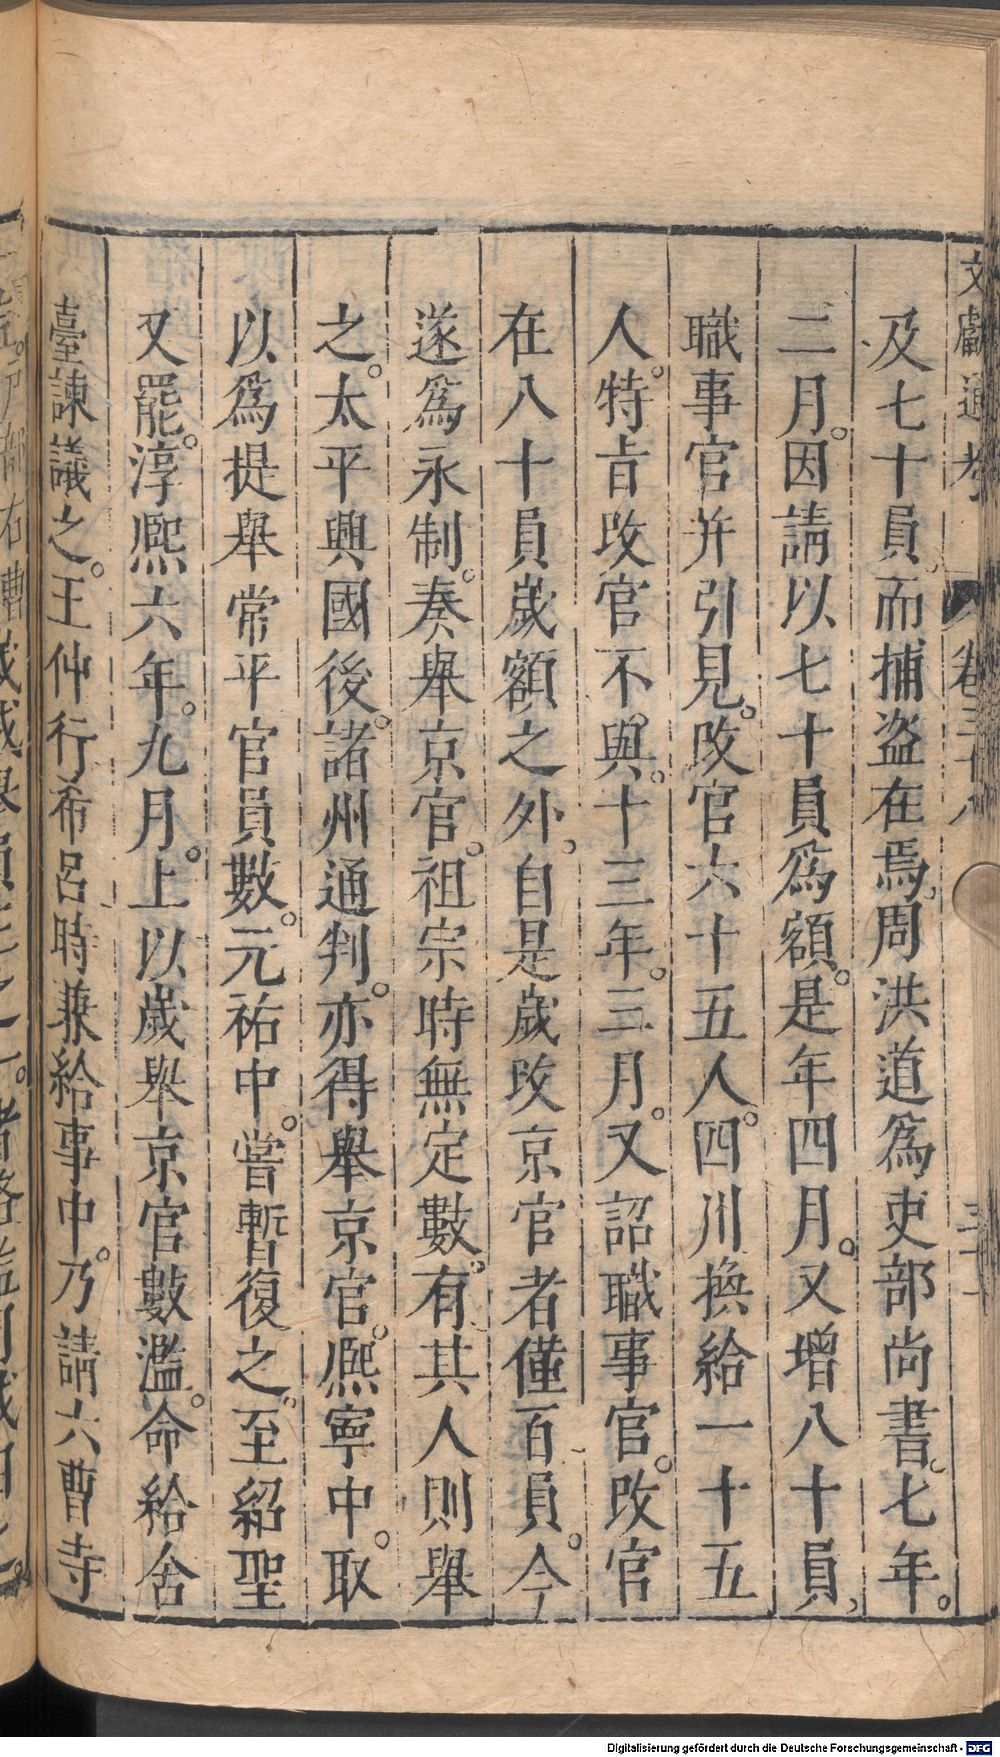 文獻通考 卷三十八
及七十員而捕盗在焉周洪道爲吏部尚書七年。
二月。因請以七十員爲額。是年四月。又增八十員
職事官并引見。改官六十五人。四川換給一十五
人。特旨改官不與。十三年。三月。又詔職事官。改官
在八十員歲額之外。自是歲改京官者僅百員。今
遂爲永制。奏舉京官。祖宗時無定數。有其人則舉
之。太平興國後。諸州通判。亦得舉京官。熙寧中。取
以爲提舉常平官員數。元祐中。嘗暫復之。至紹聖
又罷。淳熙六年。九月。上以歲舉京官數濫。命給舍
臺諫議之。王仲行希呂時兼給事中。乃請六曹寺
Digitalisierung gefördert durch die Deutsche Forschungsgemeinschaft - DFG